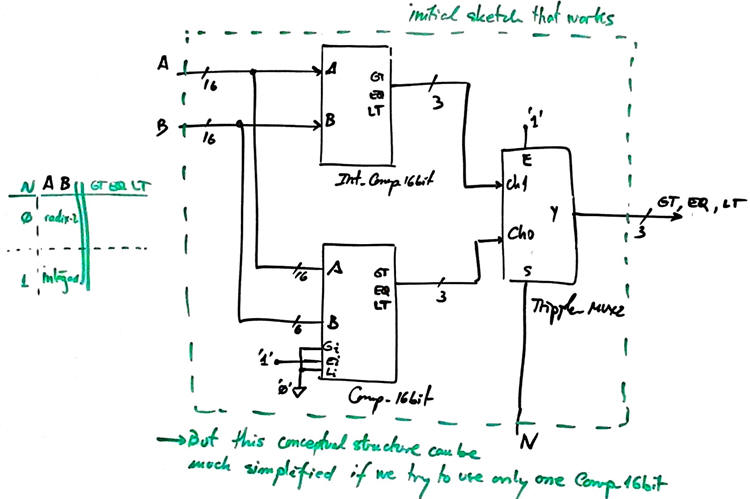 initial sketch that works
A
16
B
16
A
B
GT
EQ
LT
3
Int_Comp_16bit
'1'
E
Ch1
Ch0
Y
S
GT, EQ, LT
3
Tripple_MUX2
N A B GT EQ LT
0 radix-2
1 integer
16
A
6
B
Gi
Ei
Li
'1'
'0'
GT
EQ
LT
3
Comp_16bit
N
→But this conceptual structure can be
much simplified if we try to use only one Comp_16bit